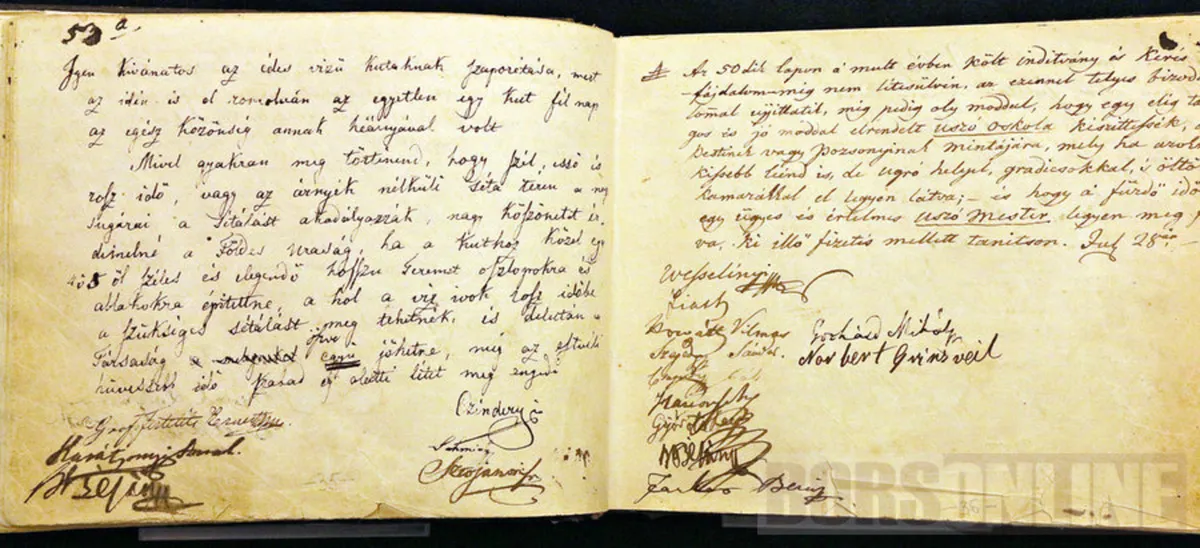 53 a.
Igen kivánatos az édes vizű kutaknak szaporítása, mert
az idén is el romolván az egyetlen egy kut fél nap
az egész közönség annak héányával volt
Mivel gyakran meg történend, hogy szél, esső és
rosz idő, vagy az árnyék nélküli séta téren a nap
sugárai a sétálást akadályozzák, nagy köszönetet ér
demelné a Földes Uraság, ha a kuthoz közel egy
öl széles és elegendő hosszu Teremet oszlopokra és
ablakokra építettne, a hol a víz ivok rosz időbe
a szükséges sétálást meg tehetnék, és délután a
Társaság öszve jőhetne, míg az estvéli
hüvessebb idő szabad ég alatti létet meg enged
Czindery
Gróf Festetits
Karátsonyi
Sztojanovits
# Az 50dik lapon á mult évben költ inditvány és Kérés
-fájdalom-míg nem létesülvén, az ezennel telyes bizoda
lommal ujjittatik, míg pedig oly móddul, hogy egy elég tá
gos és jó móddal elrendelt Uszó Oskola készittessék,
Pestinek vagy Pozsonyinak mintájára, mely ha azokn
kissebb lénd is, de ugró helyel, gradicsokkal, is öltö
kamarákkal el legyen látva; – és hogy a fürdő idő
egy ügyes és értelmes Uszó Mester legyen meg
va, Ki illő fizetés mellett tanitson. Jul 28án
Wesselényi
Liszt
Horvátt Vilmos
Gerhárd Mihály
Norbert Grinzveil
Farkas
-35-
-36-
BORSONLINE